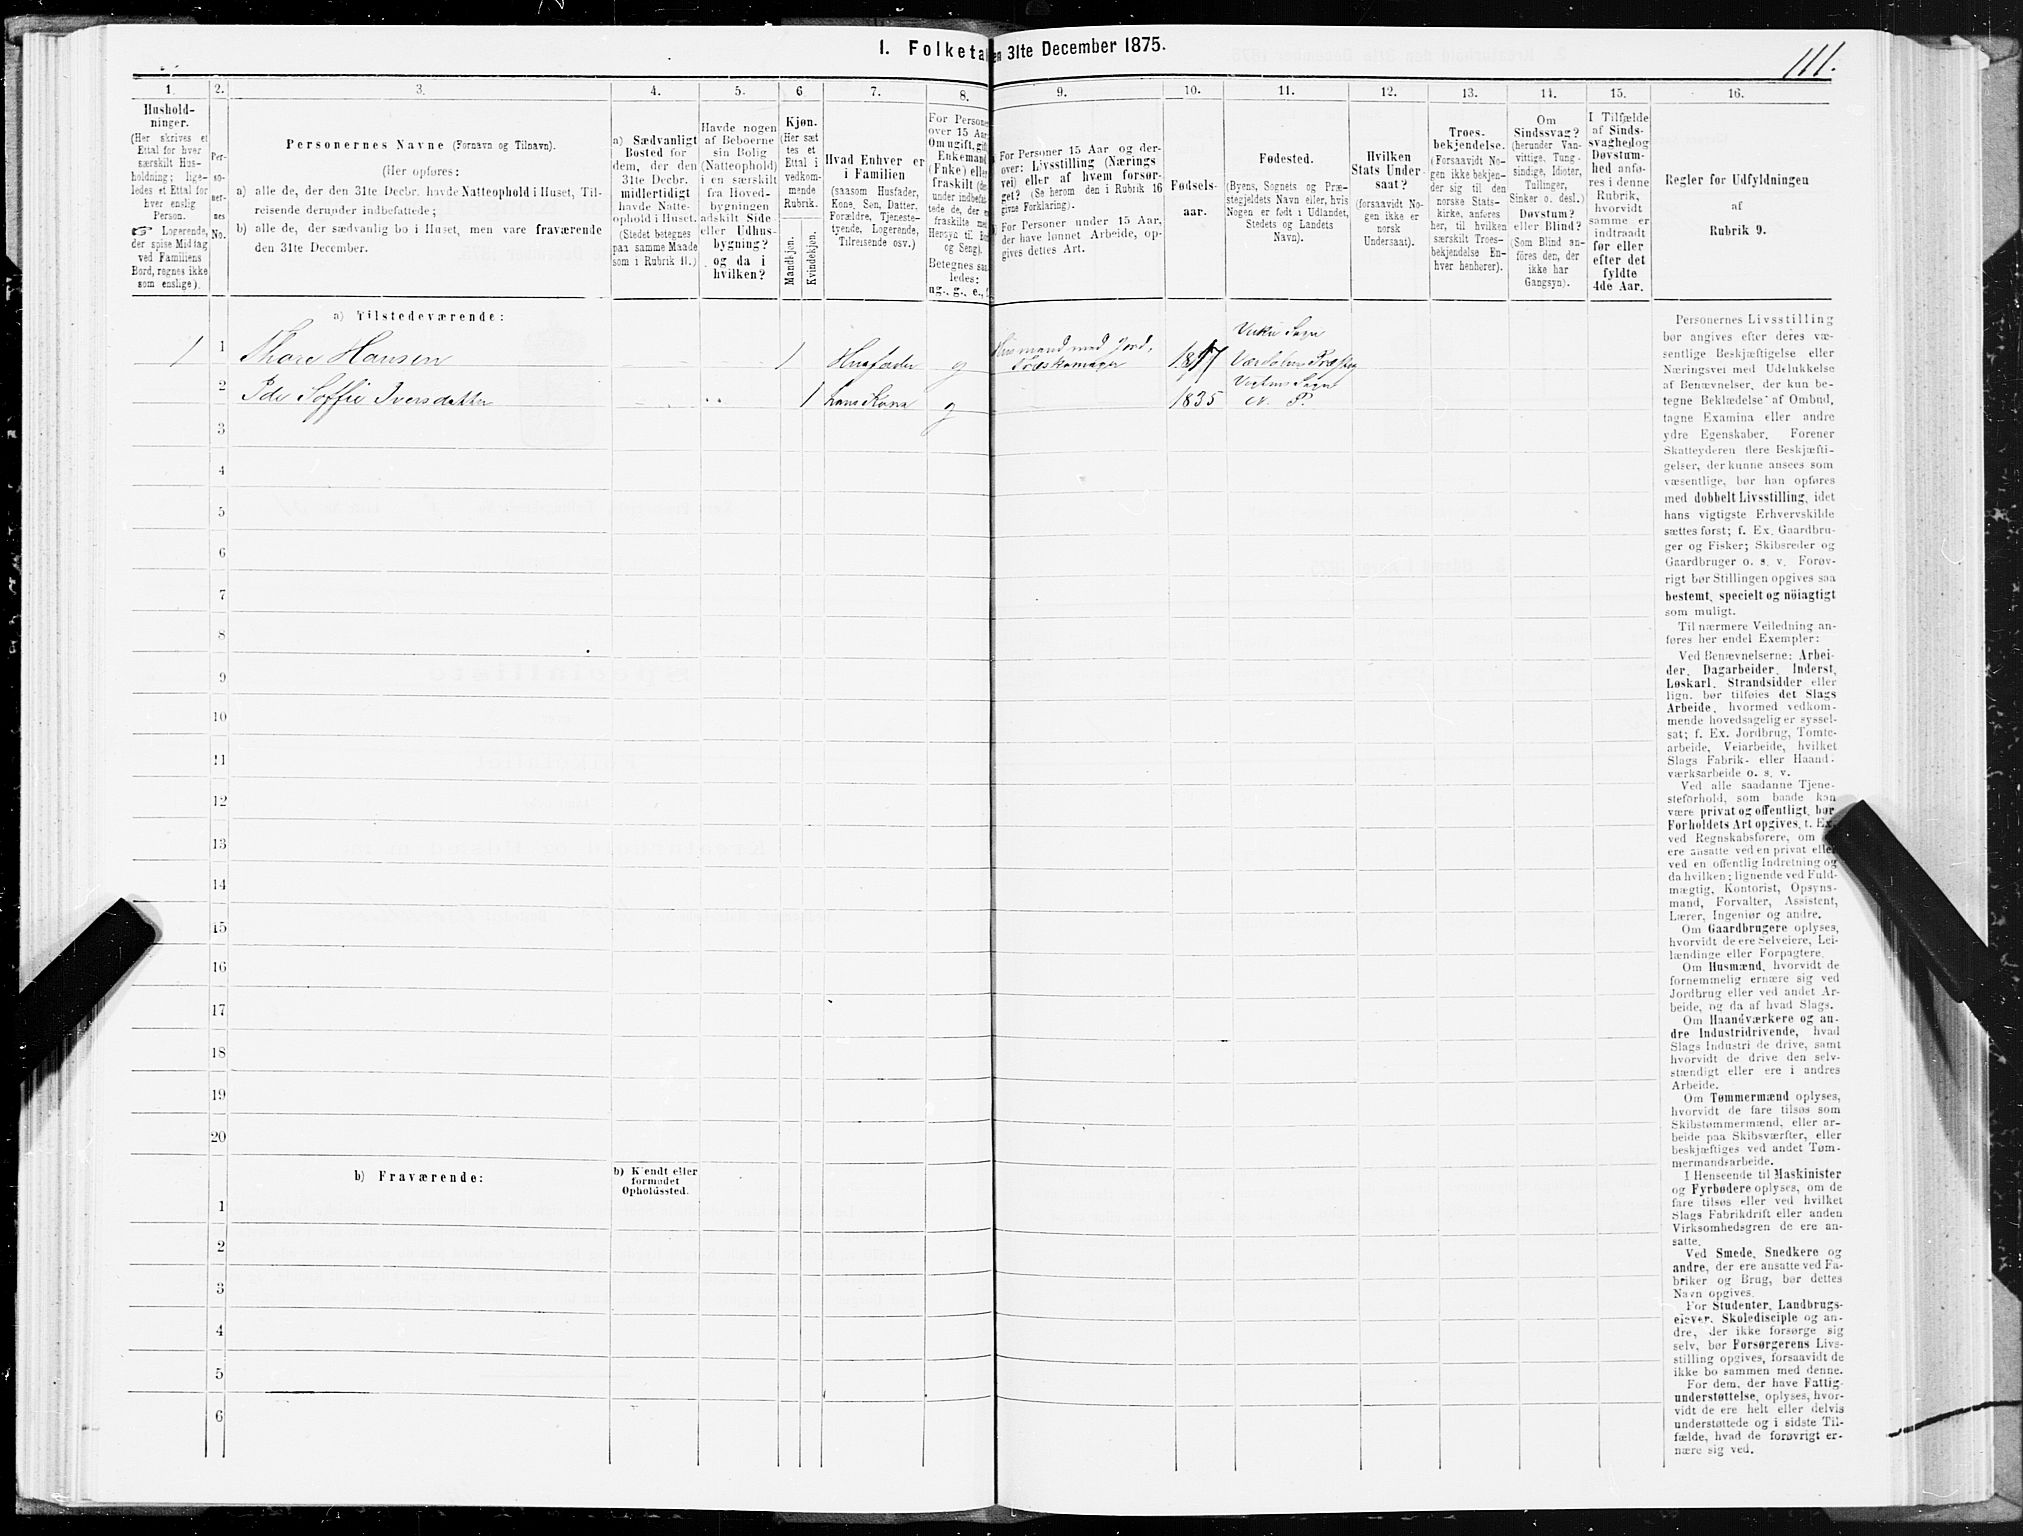 1. Folketal
en 31te December 1875.
111.
1.
2.
3.
4.
5.
6
7.
8.
9.
10.
11.
12.
13.
14.
15.
16.
Hushold-
ninger.
(Her skrives et
Ettal for hver
særskilt Hus-
holdning; lige-
ledes et Ettal for
hver enslig
Person.
☞ Logerende,
der spise Middag
ved Familiens
Bord, regnes ikke
som enslige).
Per-
so-
ner-
nes
No.
Personernes Navne (Fornavn og Tilnavn).
(Her opføres:
a) alle de, der den 31te Decbr. havde Natteophold i Huset, Til-
reisende derunder indbefattede;
b) alle de, der sædvanlig bo i Huset, men vare fraværende
den 31te December.
a) Sædvanligt
Bosted for
dem, der den
31te Decbr.
midlertidigt
havde Natte-
ophold i Huset.
(Stedet betegnes
paa samme Maade
som i Rubrik 11.)
Havde nogen
af Beboerne
sin Bolig
(Natteophold)
i en særskilt
fra Hoved-
bygningen
adskilt Side-
eller Udhus-
bygning?
og da i
hvilken?
Kjøn.
(Her sæt
tes et
Ettal i
vedkom-
mende
Rubrik.
Mandkjøn.
Kvindekjøn.
Hvad Enhver er
i Familien
(saasom Husfader,
Kone, Søn, Datter,
Forældre, Tjeneste-
tyende, Logerende,
Tilreisende osv.)
For Persone
over 15 Aar
Om ugift, gift
Enkemand
(Enke) elle
fraskilt (de
under indbefat
tede de, der e
fraskilte me
Hensyn til Bo
og Seng).
Betegnes saa
ledes:
ug., g., e.,
For Personer 15 Aar og der-
over: Livsstilling (Nærings
vei) eller af hvem forsør-
get? (Se herom den i Rubrik 16
givne Forklaring).
For Personer under 15 Aar,
der have lønnet Arbeide, op-
gives dettes Art.
Fødsels-
aar.
Fødested.
(Byens, Sognets og Præ-
stegjeldets Navn eller, hvis
Nogen er født i Udlandet,
Stedets og Landets
Navn).
Hvilken
Stats Under
saat?
(forsaavidt No-
gen ikke er
norsk
Undersaat).
Troes-
bekjendelse.
(Forsaavidt No-
gen ikke bekjen-
der sig til den
norske Stats-
kirke, anføres
her, til hvilken
særskilt Troes-
bekjendelse En-
hver henhører).
Om
Sindssvag?
(herunder Van-
vittige, Tung-
sindige, Idioter,
Tullinger,
Sinker o. desl.)
Døvstum?
eller Blind?
(Som Blind an-
føres den, der
ikke har
Gangsyn).
I Tilfælde
af Sinds-
svaghed og
Døvstum-
hed anfø-
res i denne
Rubrik,
hvorvidt
samme er
indtraadt
før eller
efter det
fyldte
4de Aar.
Regler for Udfyldningen
af
Rubrik 9.
a) Tilstedeværende:
1 1 Thore Hansen 1 Husfader g Husmand med Jord, Træskomager 18 7 Sogn
2 Ide Soffie Iversdatter 1 hans Kone g 1835 Sogn P.
3
4
5
6
7
8
9
10
11
12
13
14
15
16
17
18
19
20
b) Fraværende:
b) Kjendt eller
formodet
Opholdssted.
1
2
3
4
5
6
Personernes Livsstilling
bør angives efter deres væ-
sentlige Beskjæftigelse eller
Næringsvei med Udelukkelse
af Benævnelser, der kun be-
tegne Beklædelse af Ombud,
tagne Examina eller andre
ydre Egenskaber. Forener
Skatteyderen flere Beskjæfti-
gelser, der kunne ansees som
væsentlige, bør han opføres
med dobbelt Livsstilling, idet
hans vigtigste Erhvervskilde
sættes først; f. Ex. Gaardbru-
ger og Fisker; Skibsreder og
Gaardbruger o. s. v. Forøv-
rigt bør Stillingen opgives saa
bestemt, specielt og nöiagtigt
som muligt.
Til nærmere Veiledning an-
føres her endel Exempler:
Ved Benævnelserne: Arbei-
der, Dagarbeider, Inderst,
Løskarl, Strandsidder eller
lign. bør tilføies det Slags
Arbeide, hvormed vedkom-
mende hovedsagelig er syssel-
sat; f. Ex. Jordbrug, Tomte-
arbeide, Veiarbeide, hvilket
Slags Fabrik- eller Haand-
værksarbeide o. s. v.
Ved alle saadanne Tjene-
steforhold, som baade kan
være privat og offentligt, bør
Forholdets Art opgives, t. Ex.
ved Regnskabsførere, om
ere ansatte ved en privat eller
ved en offentlig Indretning og
da hvilken; lignende ved Fuld-
mægtig, Kontorist, Opsyns-
mand, Forvalter, Assistent,
Lærer, Ingeniør og andre.
Om Gaardbrugere oplyses,
hvorvidt de ere Selveiere, Lei-
lændinge eller Forpagtere.
Om Husmænd, hvorvidt de
fornemmelig ernære sig ved
Jordbrug eller ved andet Ar-
beide, og da af hvad Slags.
Om Haandværkere og an-
dre Industridrivende, hvad
Slags Industri de drive, samt
hvorvidt de drive den selv-
stændigt eller ere i andres
Arbeide.
Om Tømmermænd oplyses,
hvorvidt de fare tilsøs som
Skibstømmermænd, eller ar-
beide paa Skibsværfter, eller
beskjæftiges ved andet Tøm-
mermandsarbeide.
I Henseende til Maskinister
og Fyrbødere oplyses, om de
fare tilsøs eller ved hvilket
Slags Fabrikdrift eller anden
Virksomhedsgren de ere an-
satte.
Ved Smede, Snedkere og
andre, der ere ansatte ved Fa-
briker og Brug, bør dettes
Navn opgives.
For Studenter, Landbrugs-
elever, Skoledisciple og an-
dre, der ikke forsørge sig
selv, bør Forsørgerens Livs-
stilling opgives, forsaavidt de
ikke bo sammen med denne.
For dem, der have Fattig-
understøttelse, oplyses, hvor-
vidt de ere helt eller delvis
understøttede og i sidste Til-
fælde, hvad de forøvrigt er-
nære sig ved.